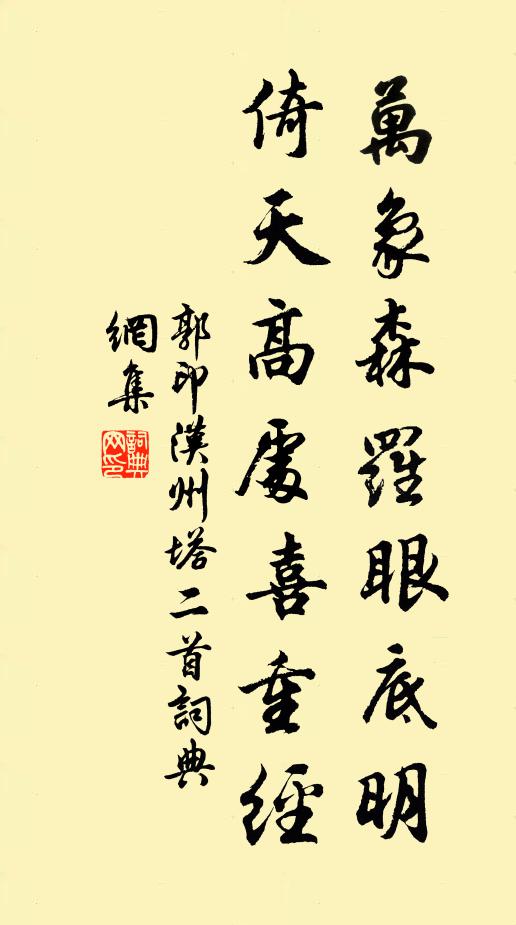 萬象森羅眼底明
倚天高處喜重經
郭印漢州塔二首詞典
網集
詞典網印